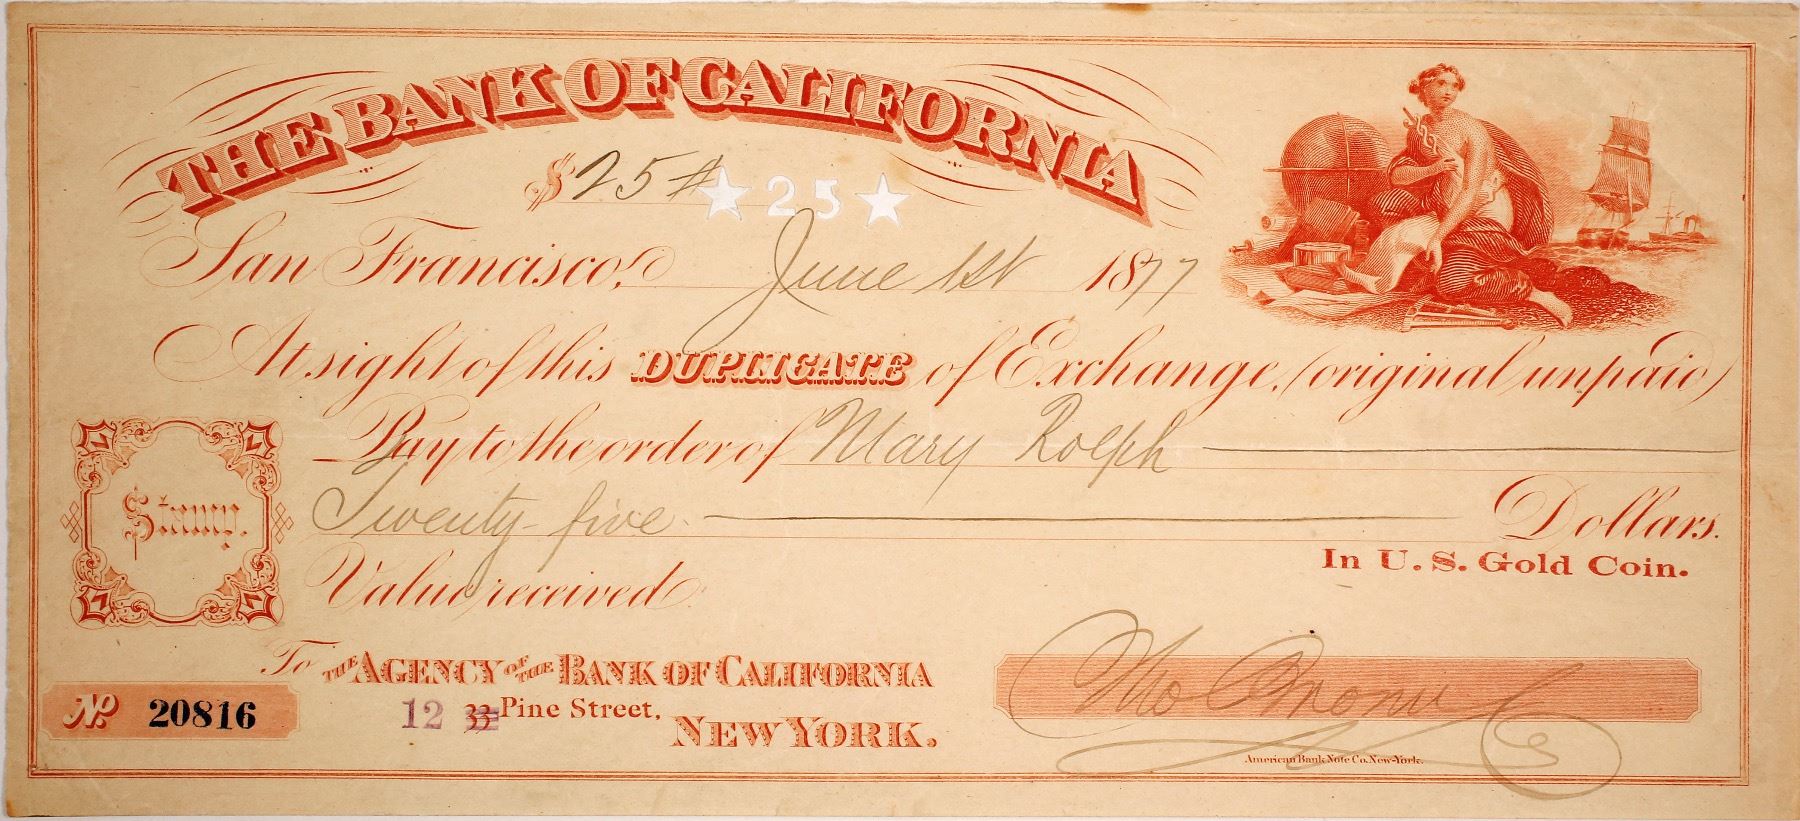 THE BANK OF CALIFORNIA
$ 25 # ★ 25 ★
San Francisco, June 1st 1877
At sight of this DUPLICATE of Exchange, (original unpaid)
Pay to the order of Mary Rolph
Twenty-five Dollars.
In U.S. Gold Coin.
Stamp.
Value received
To THE AGENCY OF THE BANK OF CALIFORNIA
No. 20816
12 33 Pine Street,
NEW YORK.
Tho Brown
American Bank Note Co. New-York.